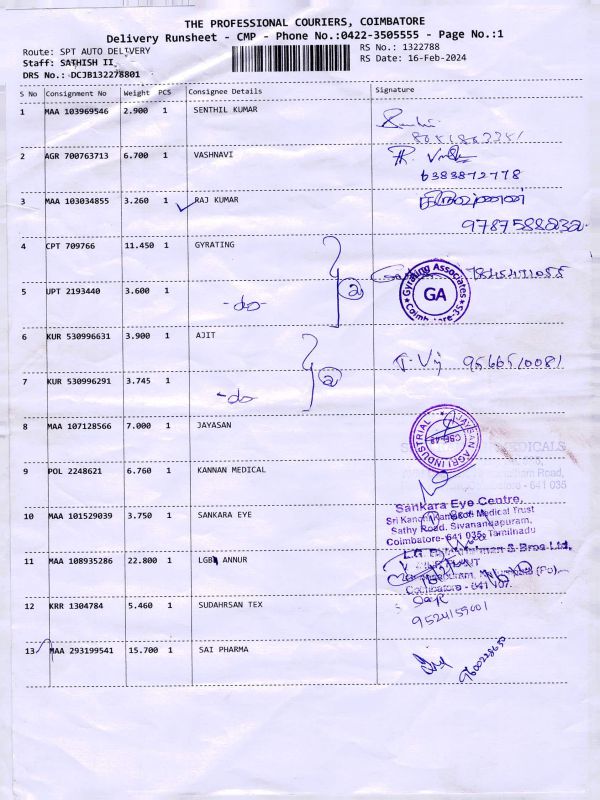 THE PROFESSIONAL COURIERS, COIMBATORE
Delivery Runsheet - CMP - Phone No.:0422-3505555 - Page No.:1
Route: SPT AUTO DELIVERY
RS No.: 1322788
Staff: SATHISH II,
RS Date: 16-Feb-2024
DRS No.: DCJB132278801
S No Consignment No Weight PCS Consignee Details Signature
1 MAA 103969546 2.900 1 SENTHIL KUMAR
2 AGR 700763713 6.700 1 VASHNAVI
6383872778
3 MAA 103034855 3.260 1 RAJ KUMAR
4 CPT 709766 11.450 1 GYRATING
Gyrating Associates
GA
Coimbatore-35
5 UPT 2193440 3.600 1 -do- 2
6 KUR 530996631 3.900 1 AJIT
9566510081
7 KUR 530996291 3.745 1 -do- 2
8 MAA 107128566 7.000 1 JAYASAN
JAYASAN AGRI INDUSTRIAL
9 POL 2248621 6.760 1 KANNAN MEDICAL
MEDICALS
Road,
641 035
10 MAA 101529039 3.750 1 SANKARA EYE
Sankara Eye Centre,
Medical Trust
Sathy Road, Sivanandapuram,
Coimbatore-641 035, Tamilnadu
11 MAA 108935286 22.800 1 LGB ANNUR
& Bros Ltd,
12 KRR 1304784 5.460 1 SUDAHRSAN TEX
9524159001
13 MAA 293199541 15.700 1 SAI PHARMA